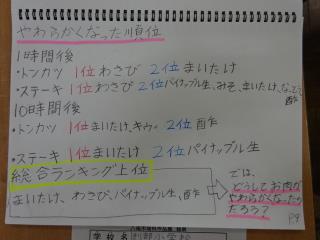 やわらかくなった順位
1時間後
・トンカツ 1位わさび 2位まいたけ
・ステーキ 1位わさび 2位パイナップル生、みそ、まいたけ、なっとう
酢
10時間後
・トンカツ 1位まいたけ、キウィ 2位酢
・ステーキ 1位まいたけ 2位パイナップル生
総合ランキング上位
まいたけ、わさび、パイナップル生、酢
では、
どうしてお肉が
やわらかくなったの
だろう?
P9
学校名